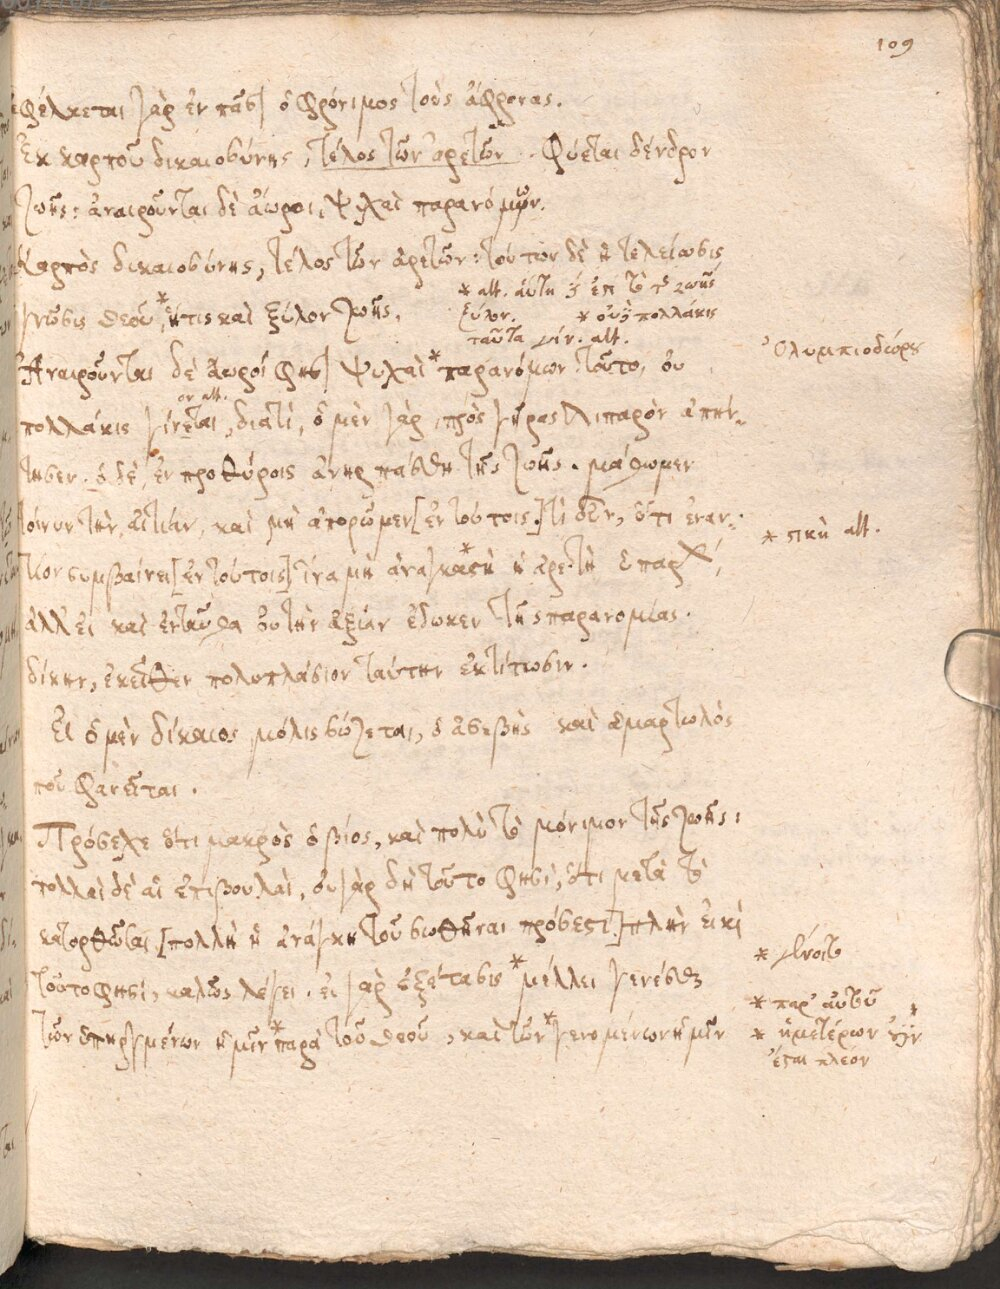 109
ἐφέλκεται γὰρ ἐν πᾶσι ὁ φρόνιμος τοὺς ἄφρονας.
Ἐκ καρποῦ δικαιοσύνης, τέλος τῶν ἀρετῶν. Φύεται δένδρον
ζωῆς: ἀναιροῦνται δὲ ἄωροι, ψυχαὶ παρανόμων.
Καρπὸς δικαιοσύνης, τέλος τῶν ἀρετῶν: τούτων δὲ ἡ τελείωσις
γνῶσις θεοῦ,* ἥτις καὶ ξύλον ζωῆς.
* alt. αὕτη ἐπὶ τὸ τῆς ζωῆς
ξύλον. * οὐ πολλάκις
ταῦτα γίν. alt.
Ὀλυμπιοδώρου
Ἀναιροῦνται δὲ ἄωροί φησι ψυχαὶ* παρανόμων: τοῦτο, οὐ
ον alt.
πολλάκις γίνεται, διατί, ὁ μὲν γὰρ πρὸς γῆρας λιπαρὸν ἀπήν-
τησεν. ὁ δὲ, ἐν προθύροις ἀνηρπάσθη τῆς ζωῆς. μάθωμεν
τοίνυν τὴν αἰτίαν, καὶ μὴ ἀπορῶμεν [ἐν τούτοις.] τί δ' ἦν, ὅτι ἐναν-
* στικὴ alt.
τίον συμβαίνει [ἐν τούτοις] ἵνα μὴ ἀναγκα*στὴ ἡ ἀρετὴ ὑπάρχῃ,
ἀλλ' εἰ καὶ ἐνταῦθα οὐ τὴν ἀξίαν ἔδωκεν τῆς παρανομίας.
δίκην, ἐκεῖθεν πολυπλάσιον ταύτην ἐκτίτωσιν.
Εἰ ὁ μὲν δίκαιος μόλις σώζεται, ὁ ἀσεβὴς καὶ ἁμαρτωλὸς
ποῦ φανεῖται.
Πρόσεχε ὅτι μακρὸς ὁ βίος, καὶ πολὺ τὸ μόνιμον τῆς ζωῆς:
πολλαὶ δὲ αἱ ἐπιβουλαὶ, οὐ γὰρ δὴ τοῦτο φησὶ, ὅτι μετὰ τὸ
κατορθῶσαι [πολλὴ ἡ ἀνάγκη τοῦ σωθῆναι πρόσεστι] πλὴν εἰ καὶ
* γένοιτο
τοῦτο φησὶ, καλῶς λέγει. εἰ γὰρ ἐξέτασις* μέλλει γενέσθαι
* παρ' αὐτοῦ
τῶν ὑπηργμένων ἡμῖν* παρὰ τοῦ θεοῦ, καὶ τῶν* γενομένων ἡμῖν
* ἡμετέρων
ἔσται πλέον